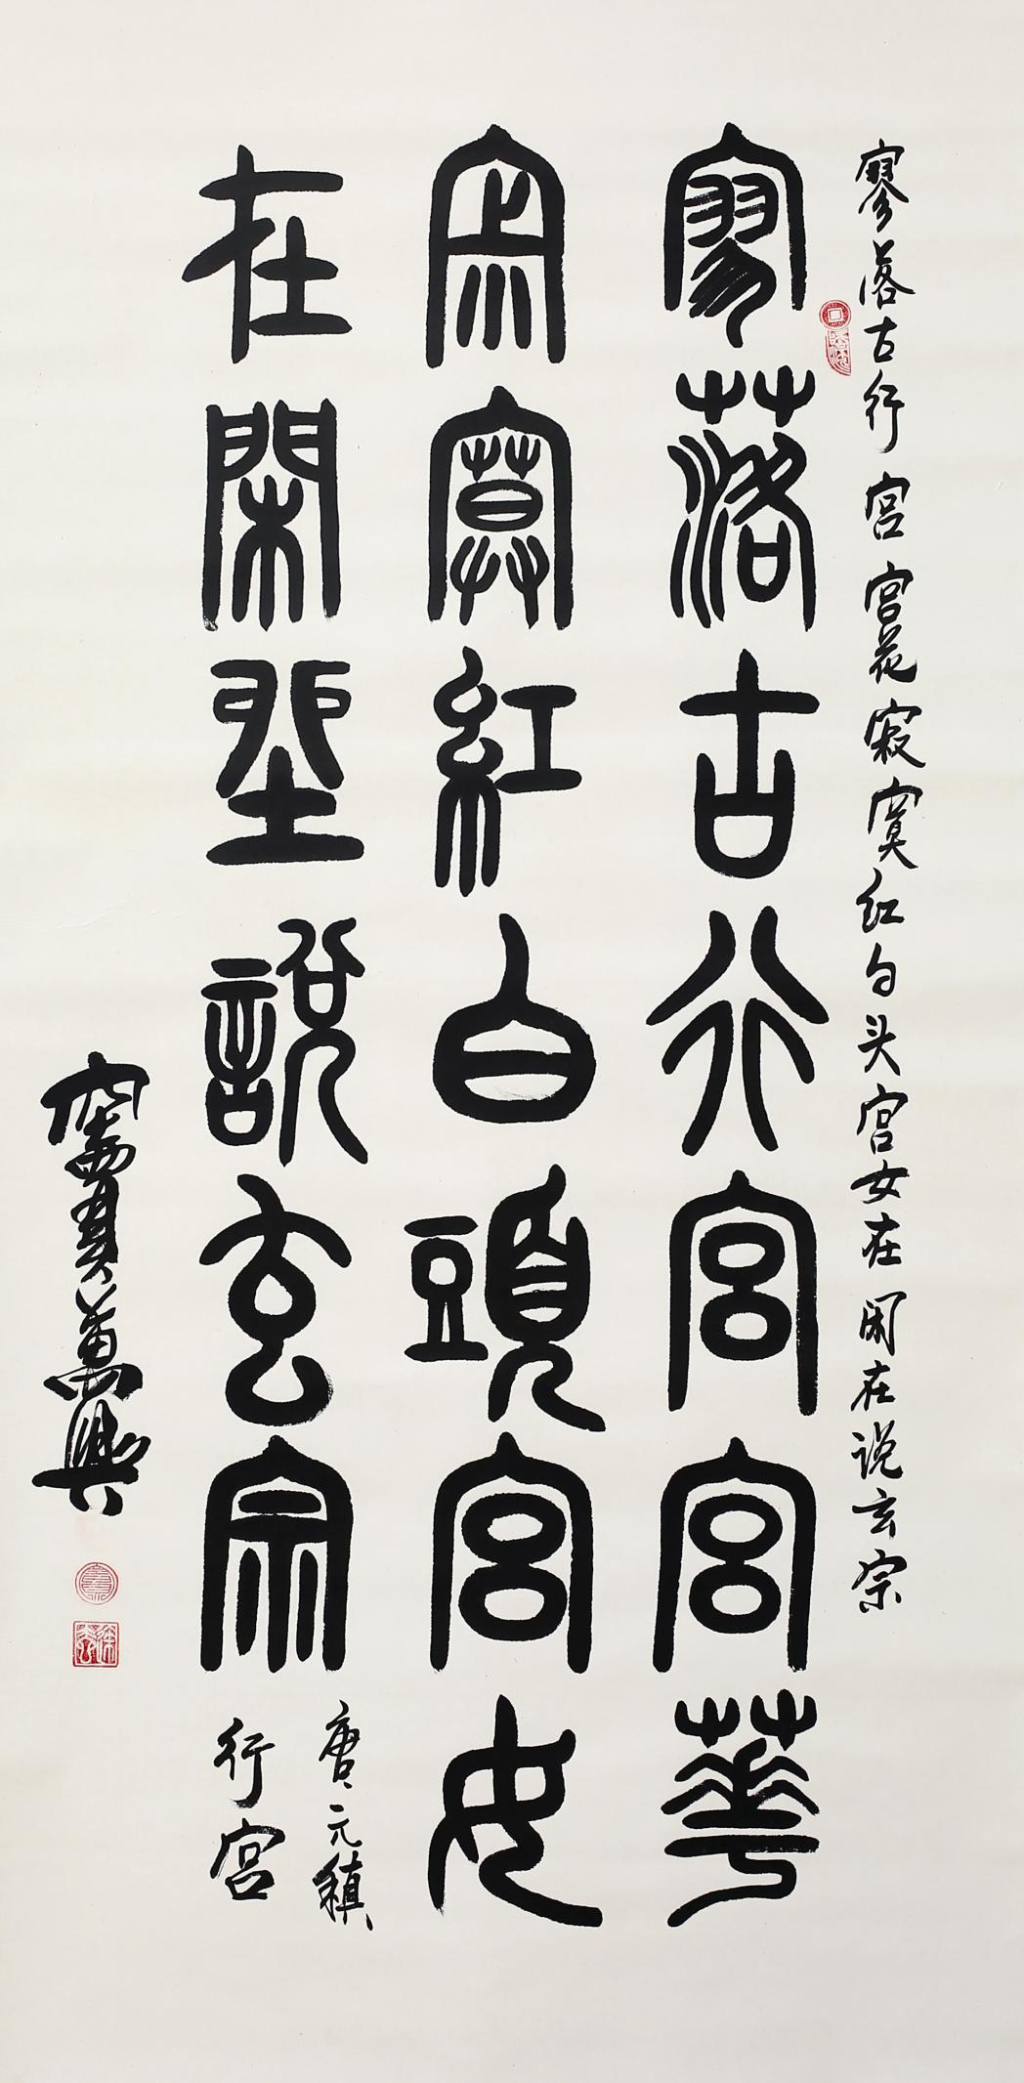 寥落古行宫宫花寂寞红白头宫女在闲在说玄宗
寥落古行宮宮華
寂寞紅白頭宮女
在閑坐說玄宗
唐元稹
行宫